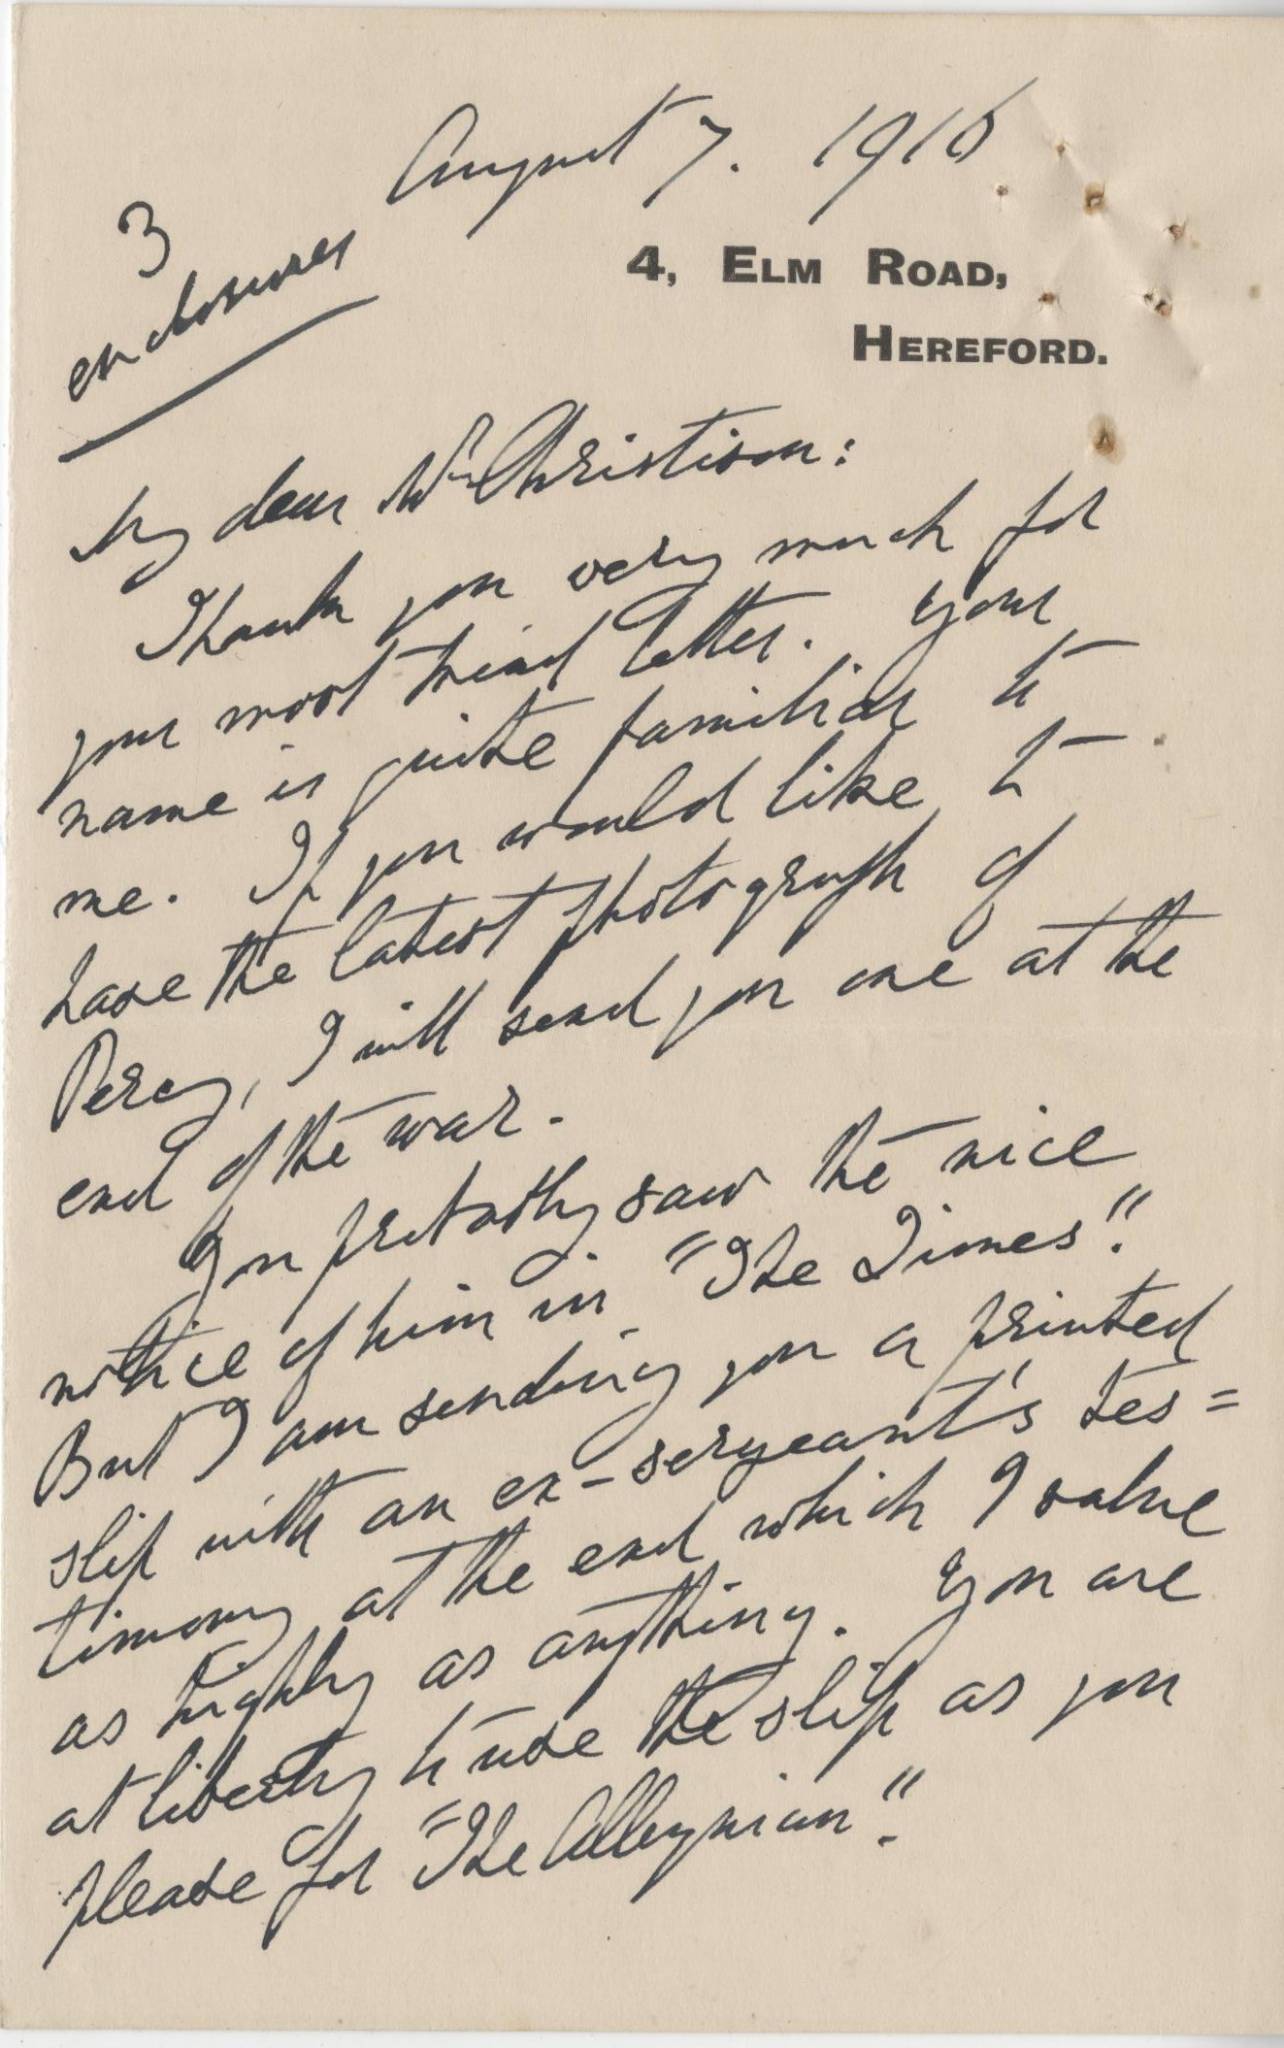 August 7. 1916
3
enclosures
4, ELM ROAD,
HEREFORD.
My dear Mr Christison:
Thank you very much for
your most kind letter. Your
name is quite familiar to
me. If you would like to
have the latest photograph of
Percy, I will send you one at the
end of the war.
You probably saw the nice
notice of him in "The Times".
But I am sending you a printed
slip with an ex-sergeant's tes=
timony at the end which I value
as highly as anything. You are
at liberty to use the slip as you
please for "The Alleynian".